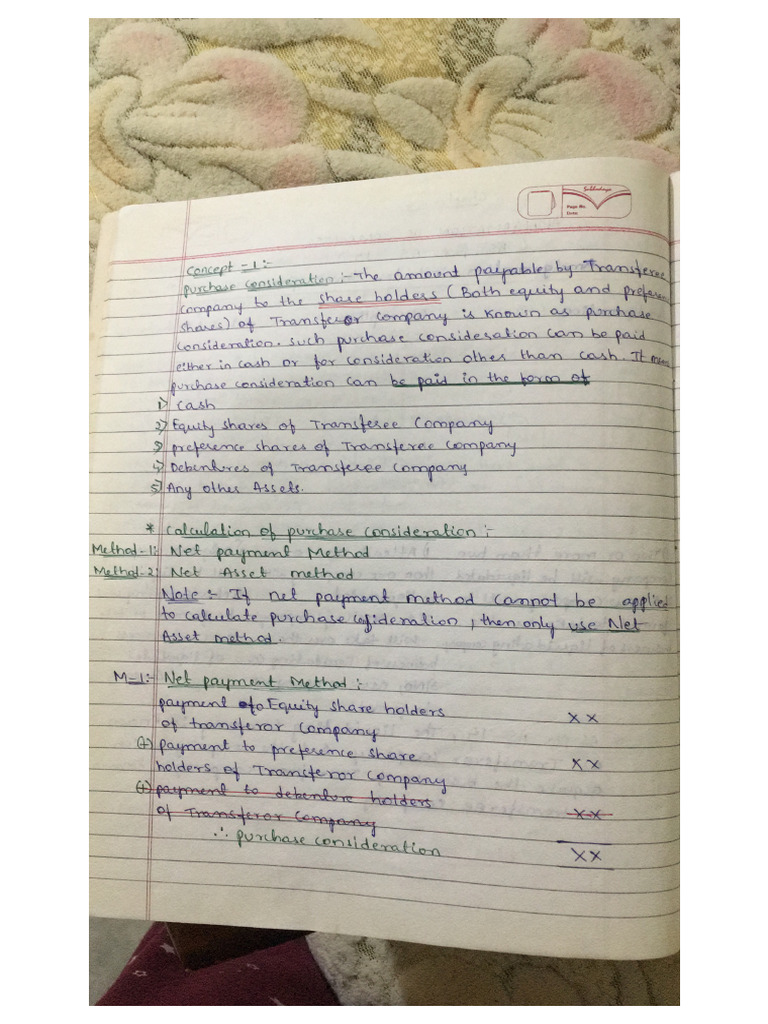 Sabhadaya
Page No.
Date:
Concept -1:-
purchase consideration :- The amount payable by Transferee
company to the share holders (Both equity and preference
shares) of Transferor company is known as purchase
consideration. such purchase consideration can be paid
either in cash or for consideration other than cash. It means
purchase consideration can be paid in the form of
1) cash
2) Equity shares of Transferee Company
3) preference shares of Transferee Company
4) Debentures of Transferee Company
5) Any other Assets.
* Calculation of purchase consideration :-
Method-1: Net payment Method
Method-2: Net Asset method
Note :- If net payment method cannot be applied
to calculate purchase cosideration, then only use Net
Asset method.
M-1:- Net payment Method :
payment to Equity share holders
of transferor company XX
(+) payment to preference share
holders of Transferor company XX
(+) payment to debenture holders
of Transferor Company XX
∴ purchase consideration XX